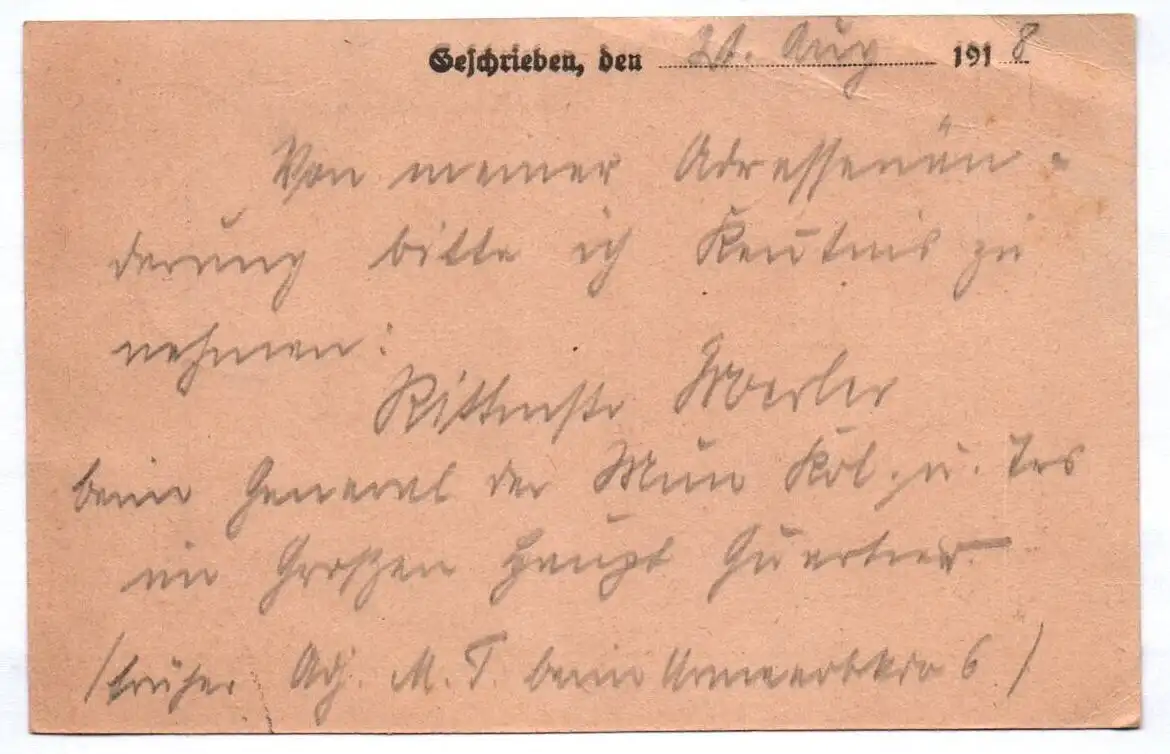 Geschrieben, den 21. Aug 1918
Von meiner Adressenän-
derung bitte ich Kentnis zu
nehmen:
Rittmstr
beim General der Mun Kol. u. Trs
im Großen Haupt Quartier
/früher Adj. M. T. beim 6/